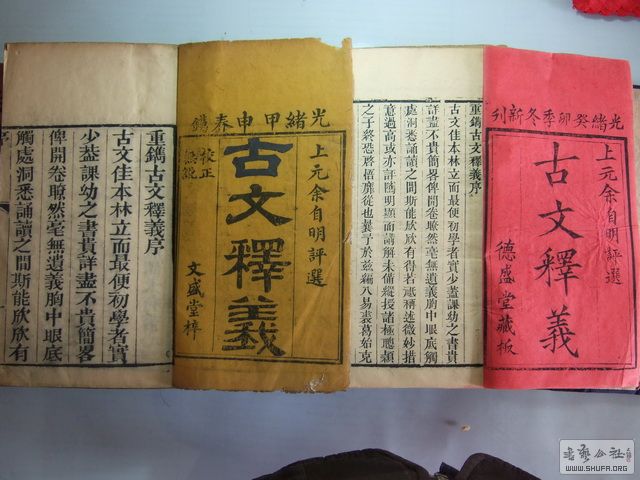 光緒癸卯季冬新刊
上元余自明評選
古文釋義
德盛堂藏板
重鐫古文釋義序
古文佳本林立而最便初學者實少葢課幼之書貴
詳盡不貴簡畧俾開卷瞭然毫無遺義胸中眼底觸
處洞悉誦讀之間斯能欣欣有得若祗稱述微妙措
意過高或亦評隲明顯而諸解未備縱授諸極聰穎
之子終恐啓悟靡從也於茲編八易裘葛始克
光緒甲申春鐫
上元余自明評選
古文釋義
校正無訛
文盛堂梓
重鐫古文釋義序
古文佳本林立而最便初學者實
少葢課幼之書貴詳盡不貴簡畧
俾開卷瞭然毫無遺義胸中眼底
觸處洞悉誦讀之間斯能欣欣有
序
書藝公社
WWW.SHUFA.ORG